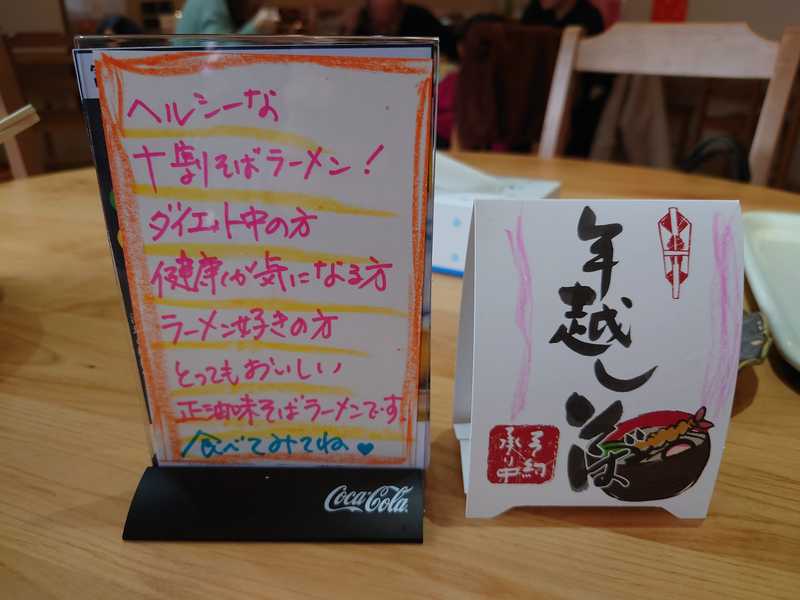 ヘルシーな
十割そばラーメン!
ダイエット中の方
健康が気になる方
ラーメン好きの方
とってもおいしい
正油味そばラーメンです
食べてみてね♥
Coca-Cola
年越しそば
予約
承り中